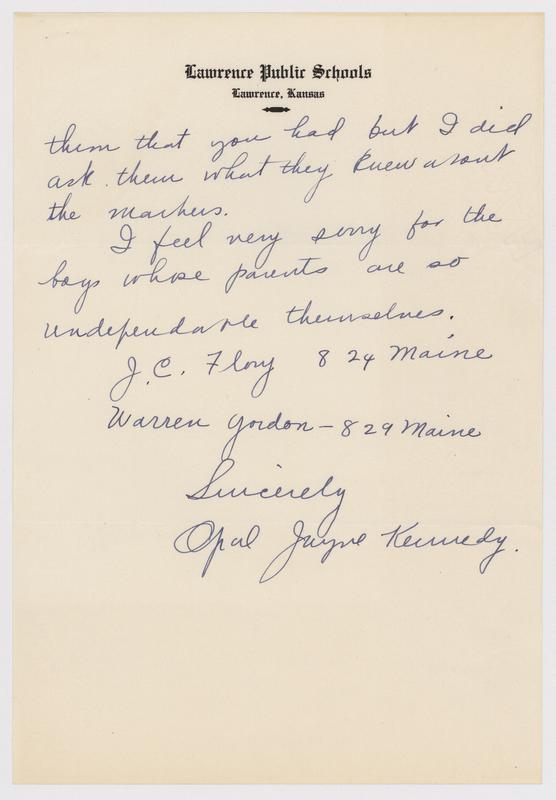 Lawrence Public Schools
Lawrence, Kansas
them that you had but I did
ask them what they knew about
the markers.
I feel very sorry for the
boys whose parents are so
undependable themselves.
J.C. Flory 824 Maine
Warren Gordon - 829 Maine
Sincerely
Opal Jayne Kennedy.